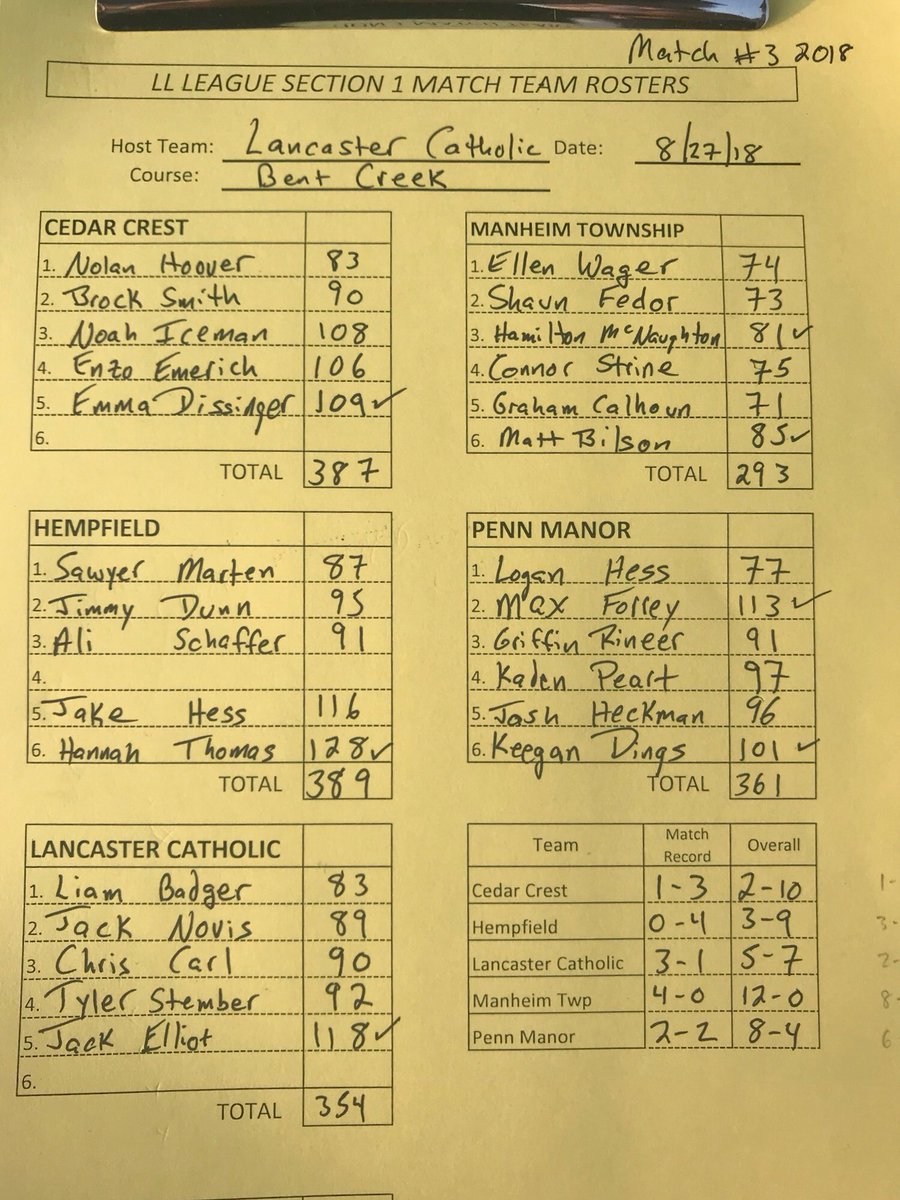 Match #3 2018
LL LEAGUE SECTION 1 MATCH TEAM ROSTERS
Host Team: Lancaster Catholic Date: 8/27/18
Course: Bent Creek
CEDAR CREST
1. Nolan Hoover 83
2. Brock Smith 90
3. Noah Iceman 108
4. Enzo Emerich 106
5. Emma Dissinger 109 ✓
6.
TOTAL 387
MANHEIM TOWNSHIP
1. Ellen Wager 74
2. Shaun Fedor 73
3. Hamilton McNaughton 81 ✓
4. Connor Strine 75
5. Graham Calhoun 71
6. Matt Bilson 85 ✓
TOTAL 293
HEMPFIELD
1. Sawyer Marten 87
2. Jimmy Dunn 95
3. Ali Schaffer 91
4.
5. Jake Hess 116
6. Hannah Thomas 128 ✓
TOTAL 389
PENN MANOR
1. Logan Hess 77
2. Max Forrey 113 ✓
3. Griffin Rineer 91
4. Kaden Peart 97
5. Josh Heckman 96
6. Keegan Dings 101 ✓
TOTAL 361
LANCASTER CATHOLIC
1. Liam Badger 83
2. Jack Novis 89
3. Chris Carl 90
4. Tyler Stember 92
5. Jack Elliot 118 ✓
6.
TOTAL 354
Team Match Record Overall
Cedar Crest 1-3 2-10
Hempfield 0-4 3-9
Lancaster Catholic 3-1 5-7
Manheim Twp 4-0 12-0
Penn Manor 2-2 8-4